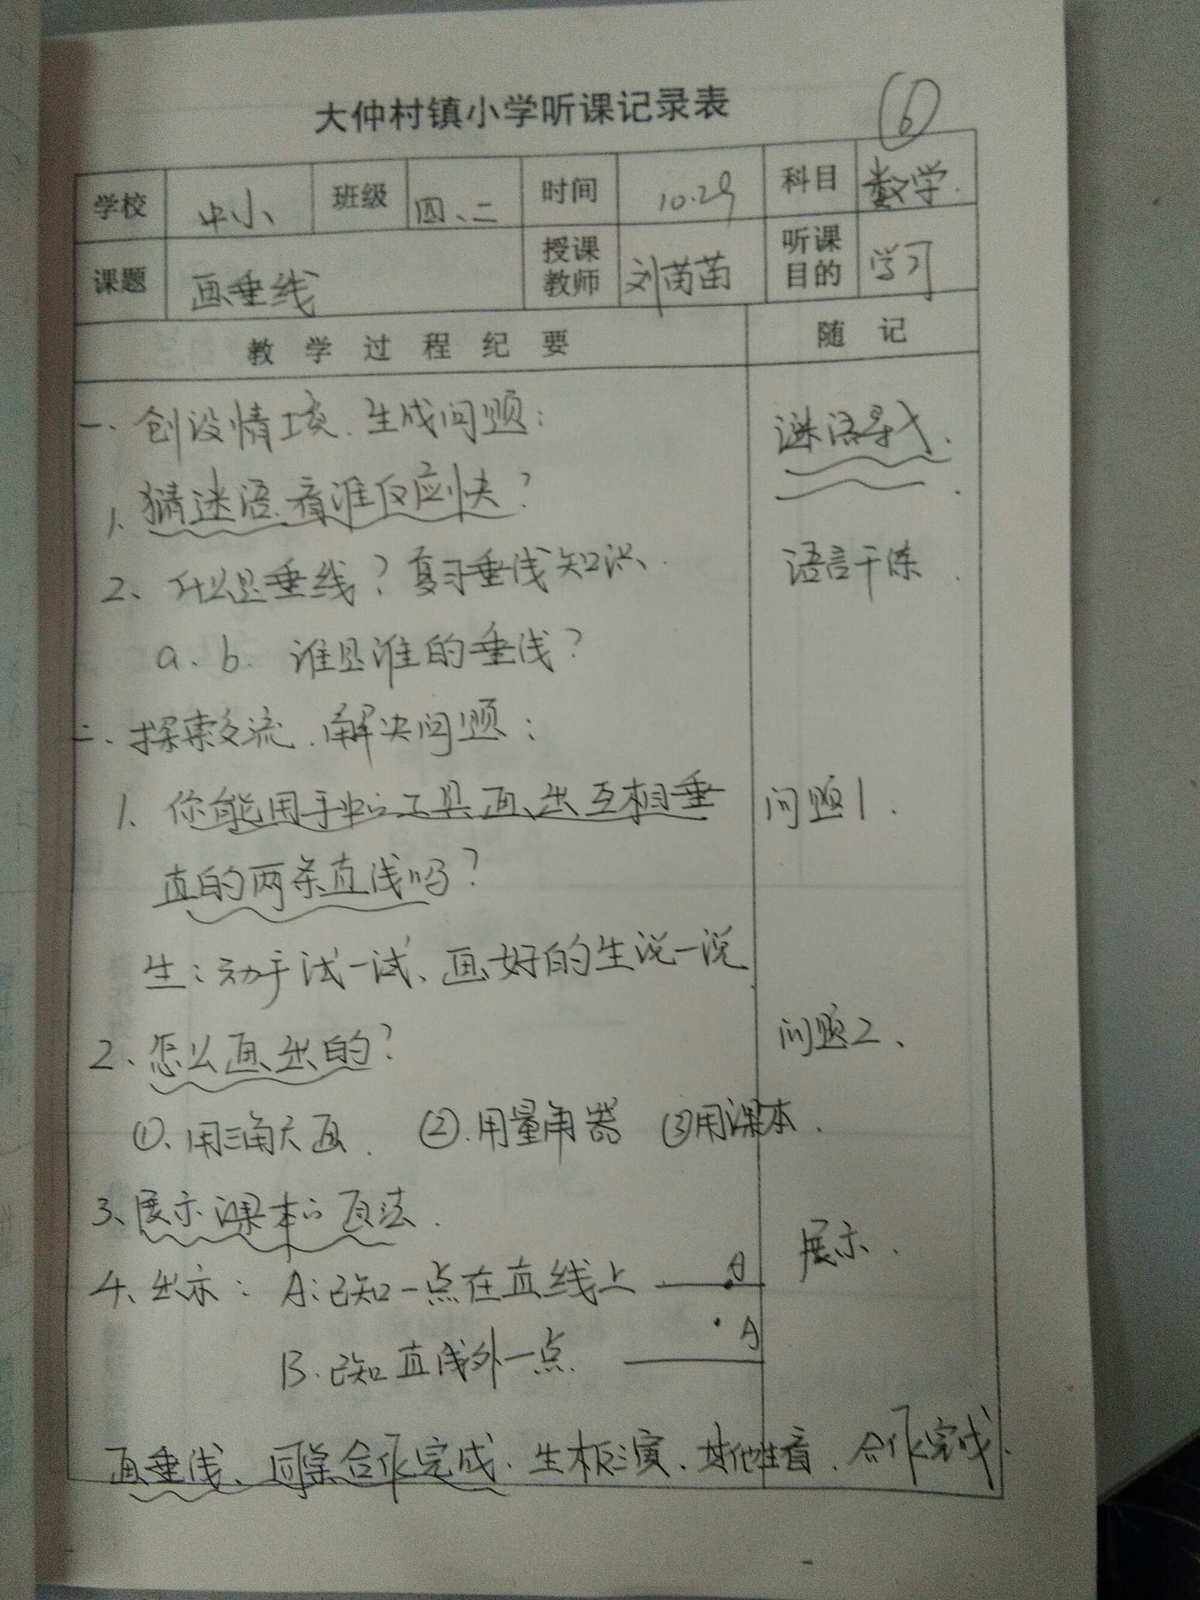 大仲村镇小学听课记录表
⑥
学校 中小 班级 四、二 时间 10.29 科目 数学.
课题 画垂线 授课教师 刘苗苗 听课目的 学习
教学过程纪要 随记
一、创设情境、生成问题：
谜语导入.
1、猜迷语.看谁反应快？
2、什么是垂线？复习垂线知识.
语言干练.
a、b. 谁是谁的垂线？
二、探索交流.解决问题：
1、你能用手中的工具画出互相垂
问题1.
直的两条直线吗？
生：动手试一试、画好的生说一说
2、怎么画出的？
问题2、
①、用三角尺画. ②.用量角器 ③用课本.
3、展示课本的画法.
展示.
4、出示：A：已知一点在直线上 A
B.已知直线外一点. A
画垂线、同桌合作完成.生板演、其他生看.合作完成.